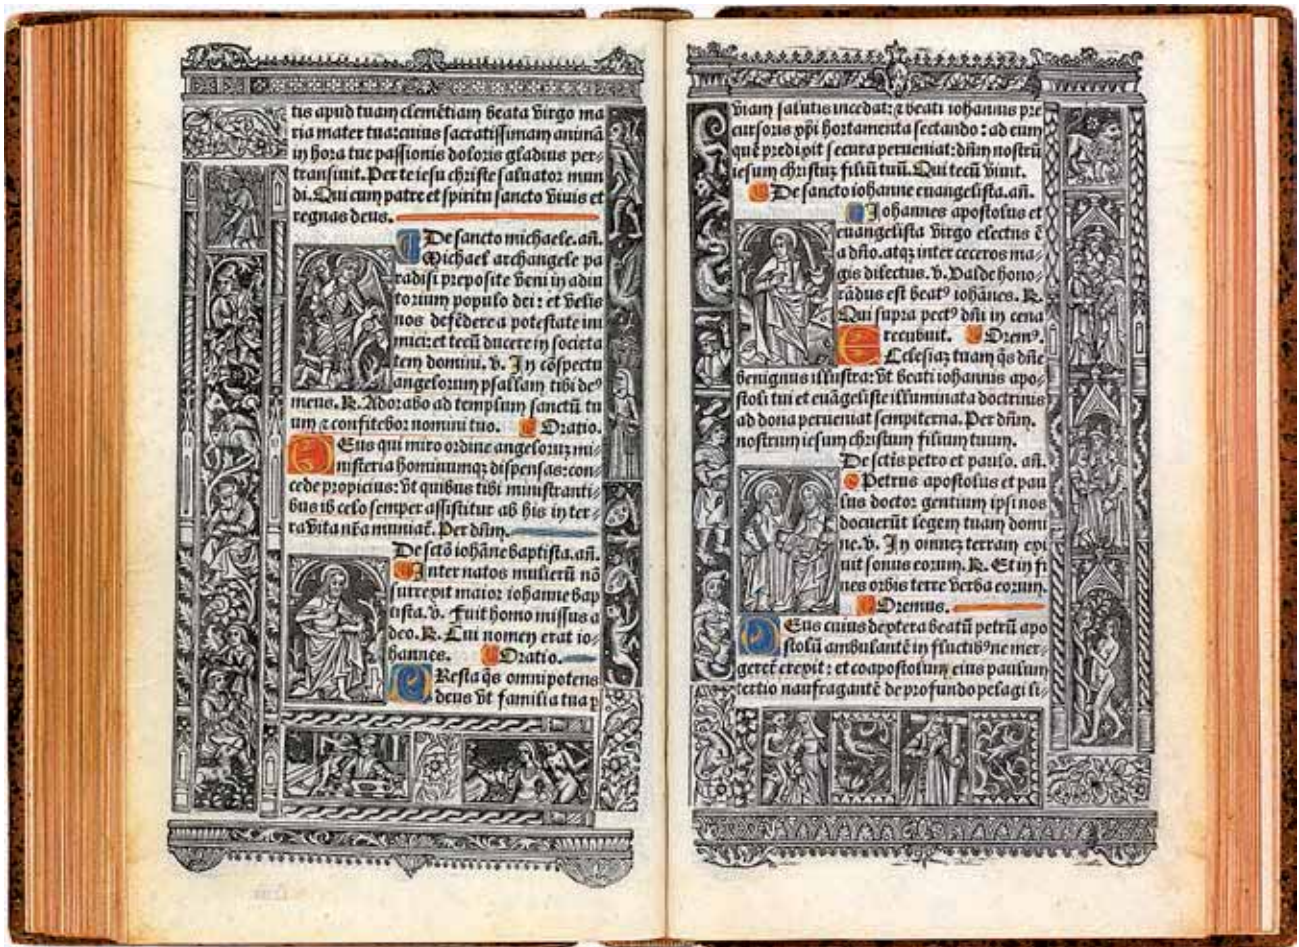 tis apud tuam clemẽtiam beata virgo ma
ria mater tua: cuius sacratissimam animã
in hora tue passionis doloris gladius per-
transiuit. Per te iesu christe saluator mun
di. Qui cum patre et spiritu sancto viuis et
regnas deus.
De sancto michaele. añ.
Michael archangele pa
radisi preposite veni in adiu
torium populo dei: et velis
nos defẽdere a potestate ini
mici: et tecũ ducere in societa
tem domini. v. In cõspectu
angelorum psallam tibi deꝰ
meus. R. Adorabo ad templum sanctũ tu
um ⁊ confitebor nomini tuo. Oratio.
Deus qui miro ordine angeloruꝫ mi-
nisteria hominumqꝫ dispensas: con-
cede propicius: vt quibus tibi ministranti-
bus ĩ celo semper assistitur ab his in ter-
ra vita nr̃a muniat̃. Per dñm.
De sctõ iohãne baptista. añ.
Inter natos mulierũ nõ
surrexit maior iohanne bap
tista. v. Fuit homo missus a
deo. R. Cui nomen erat io-
hannes. Oratio.
Presta q̃s omnipotens
deus vt familia tua p
viam salutis incedat: ⁊ beati iohannis pre
cursoris xp̃i hortamenta sectando: ad eum
quẽ predixit secura perueniat: dñm nostrũ
iesum christuꝫ filiũ tuũ. Qui tecũ viuit.
De sancto iohanne euangelista. añ.
Iohannes apostolus et
euangelista virgo electus ẽ
a dño. atqꝫ inter ceteros ma-
gis dilectus. v. Valde hono-
rãdus est beatꝰ iohãnes. R.
Qui supra pectꝰ dñi in cena
recubuit. Oremꝰ.
Ecclesiaꝫ tuam q̃s dñe
benignus illustra: vt beati iohannis apo-
stoli tui et euãgeliste illuminata doctrinis
ad dona perueniat sempiterna. Per dñm.
nostrum iesum christum filium tuum.
De sctis petro et paulo. añ.
Petrus apostolus et pau
lus doctor gentium ipsi nos
docuerũt legem tuam domi
ne. v. In omneꝫ terram exi
uit sonus eorum. R. Et in fi
nes orbis terre verba eorum.
Oremus.
Deus cuius dextera beatũ petrũ apo
stolũ ambulantẽ in fluctibꝰ ne mer-
geret̃ erexit: et coapostolum eius paulum
tertio naufragantẽ de profundo pelagi li-